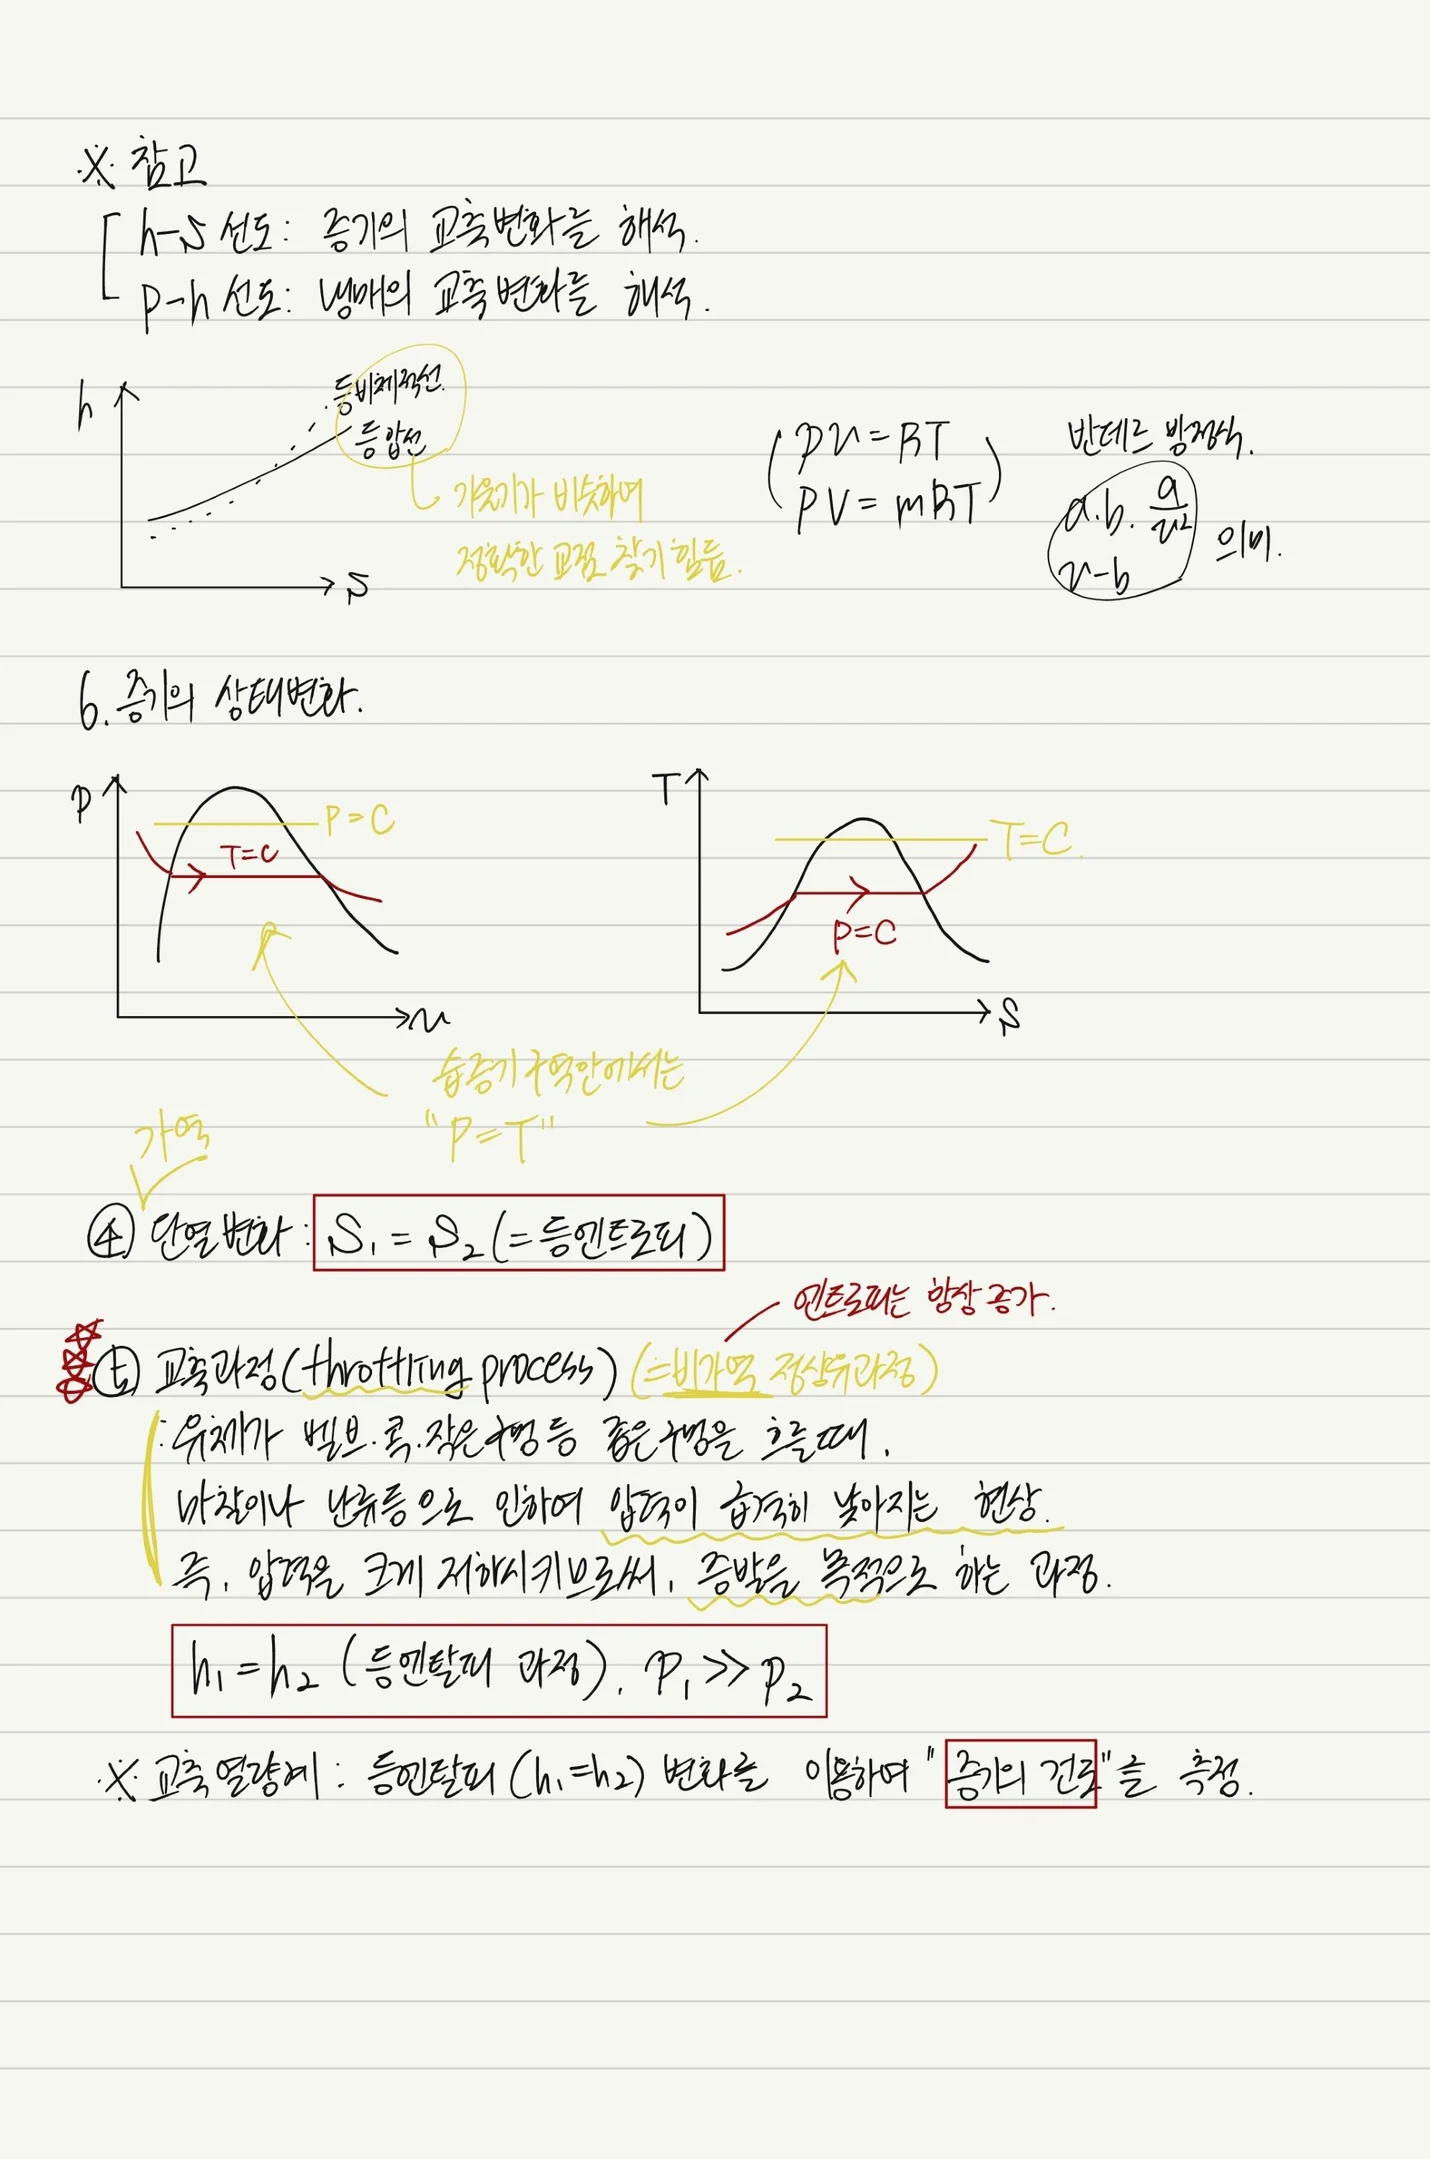 ※ 참고
h-s 선도 : 증기의 교축변화를 해석.
p-h 선도 : 냉매의 교축변화를 해석.
h
등비체적선.
등압선
기울기가 비슷하여
정확한 교점 찾기 힘듦.
s
(pv=RT
PV=mRT)
반데르 방정식.
a.b. a/v²
v-b
의미.
6. 증기의 상태변화.
P
P=C
T=C
v
T
T=C
P=C
s
습증기 구역안에서는
"P=T"
가역
④ 단열변화 : S₁ = S₂ (=등엔트로피)
엔트로피는 항상 증가.
⑤ 교축과정(throttling process) (=비가역 정상유과정)
: 유체가 벨브.콕.작은구멍 등 좁은구멍을 흐를때,
마찰이나 난류등으로 인하여 압력이 급격히 낮아지는 현상.
즉, 압력을 크게 저하시키므로써, 증발을 목적으로 하는 과정.
h₁=h₂ (등엔탈피 과정). P₁ >> P₂
※ 교축열량계 : 등엔탈피(h₁=h₂) 변화를 이용하여 "증기의 건도"를 측정.